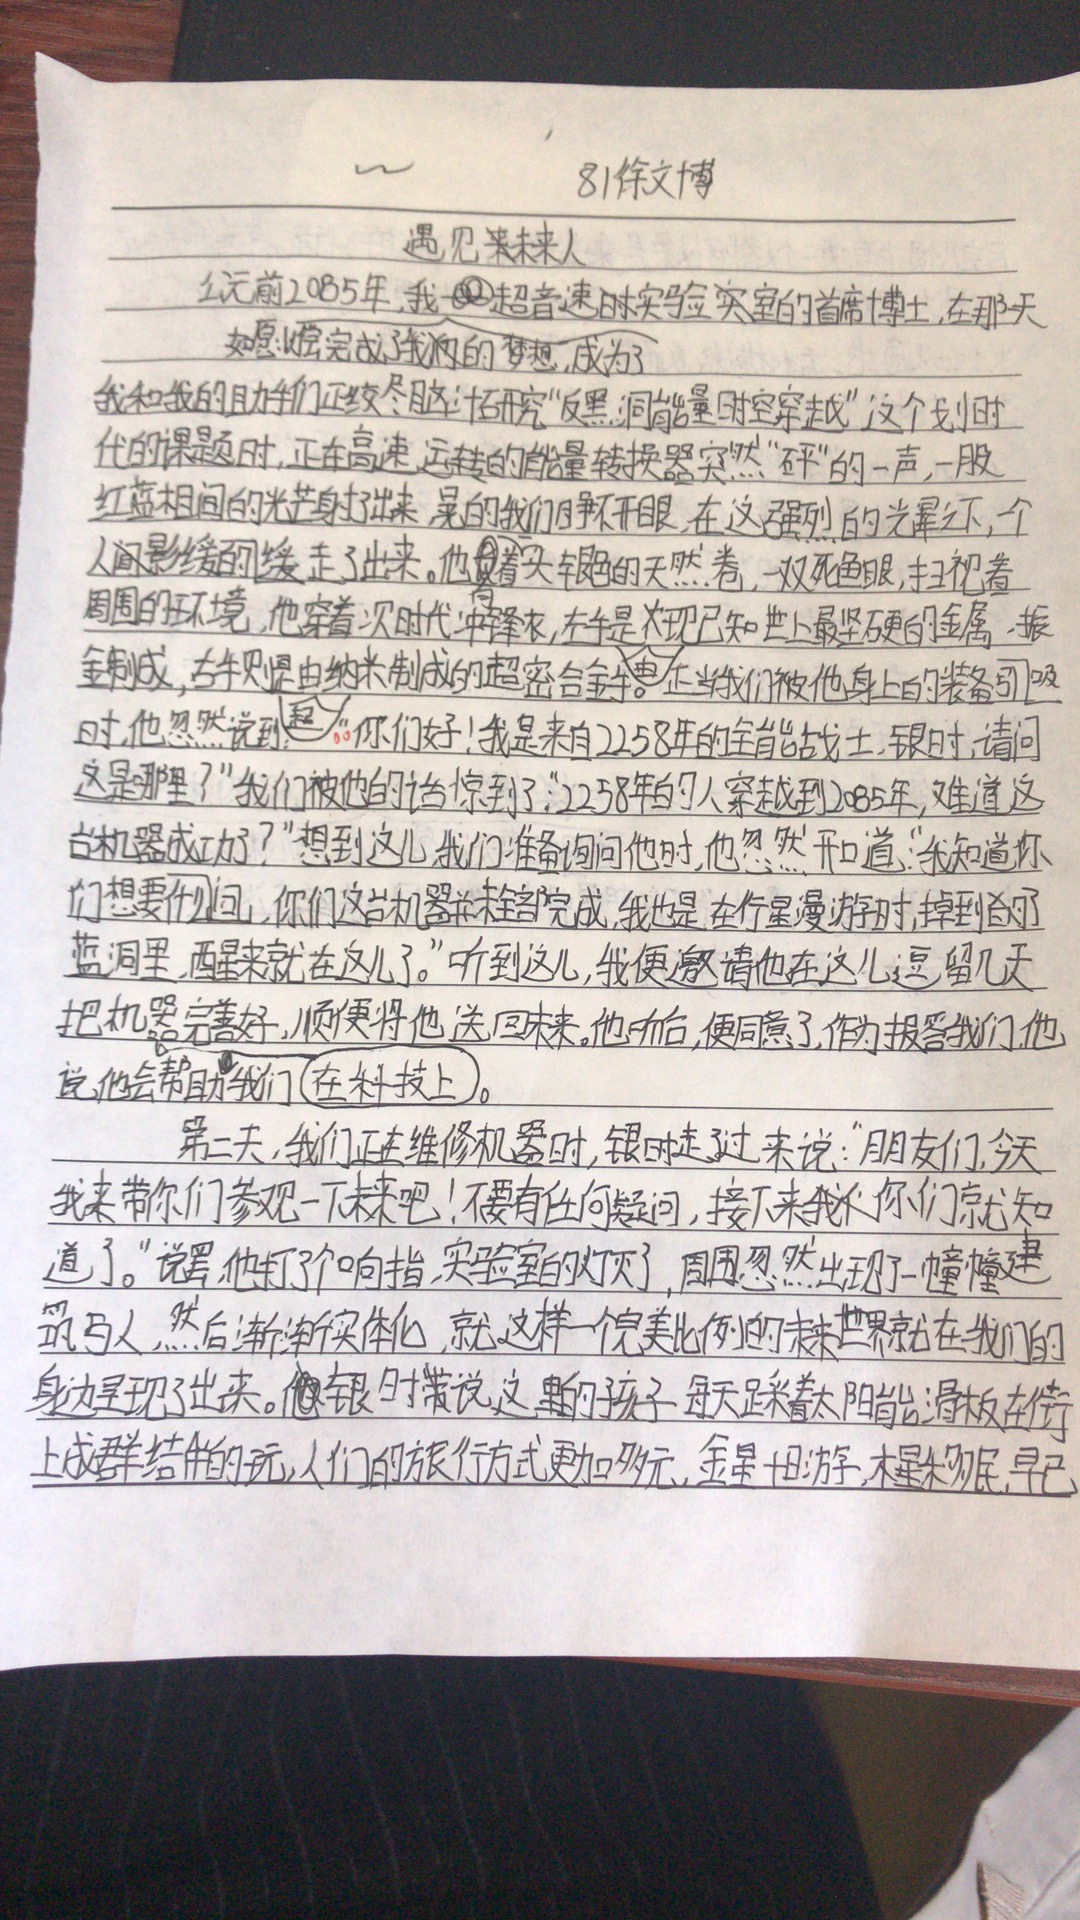 81徐文博
遇见未来人
公元前2085年,我超音速时实验实室的首席博士,在那天
如愿以偿完成了我的梦想,成为了
我和我的助手们正绞尽脑汁研究“反黑洞能量时空穿越”这个划时
代的课题时,正在高速运转的能量转换器突然“砰”的一声,一股
红蓝相间的光芒射了出来,晃的我们睁不开眼,在这强烈的光晕之下,一个
人影缓缓的走了出来。他有着头银色的天然卷,一双死色眼,扫视着
周围的环境,他穿着次时代冲锋衣,左手是次现已知世上最坚硬的金属·振
金制成,右手则是由纳米制成的超密合金手。正当我们被他身上的装备引吸
时,他忽然说到起“你们好!我是来自2258年的全能战士,银时,请问
这是那里?”我们被他的话惊到了:“2258年的人穿越到2085年,难道这
台机器成功了?”想到这儿,我们准备询问他时,他忽然开口道:“我知道你
们想要什么问,你们这台机器并未全部完成,我也是在行星漫游时,掉到的了
蓝洞里,醒来就在这儿了。”听到这儿,我便邀请他在这儿逗留几天
把机器完善好,顺便将他送回未来。他听后,便同意了,作为报答我们,他
说,他会帮助我们在科技上。
第二天,我们正在维修机器时,银时走了过来说:“朋友们,今天
我来带你们参观一下未来吧!不要有任何疑问,接下来我你们就知
道了。”说罢,他打了个响指,实验室的灯灭了,周围忽然出现了一幢幢建
筑与人,然后渐渐实体化,就这样一个完美比例的未来世界就在我们的
身边呈现了出来。银时带说,这里的孩子每天踩着太阳能滑板在街
上成群结伴的玩,人们的旅行方式更加多元,金星十日游,木星移民,早已